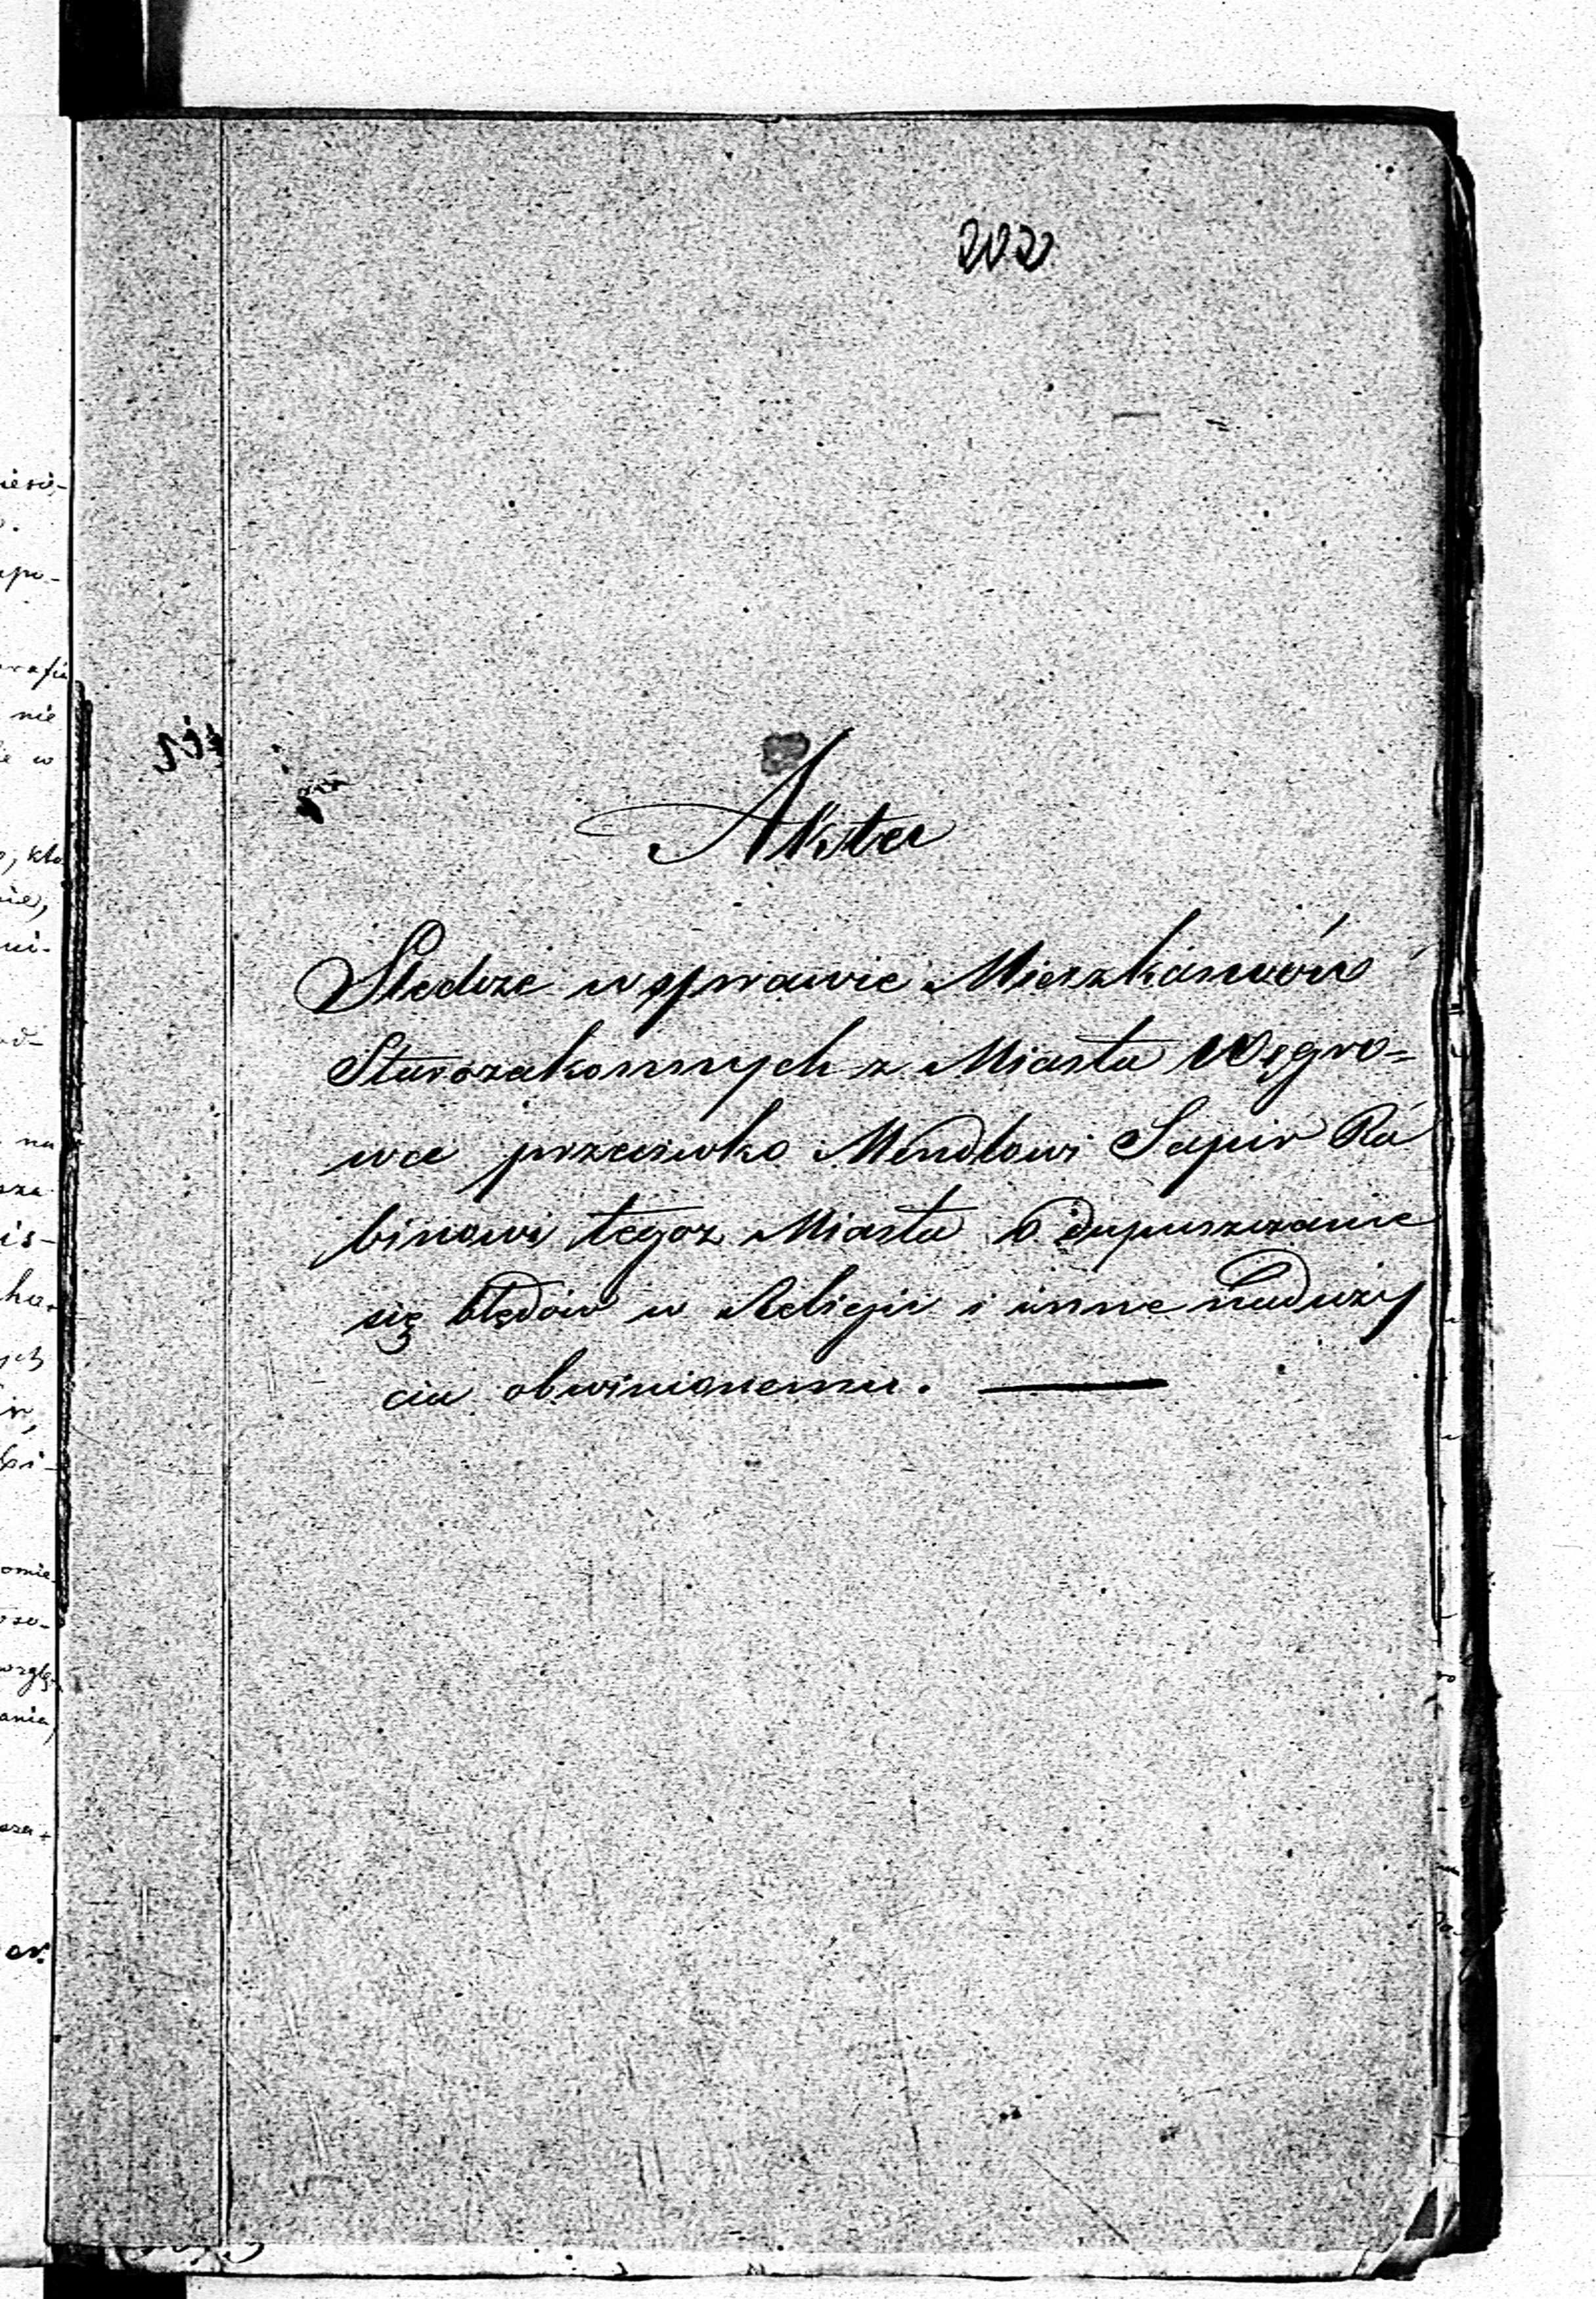 202
Akta
Śledcze w sprawie Mieszkańców
Starozakonnych z Miasta Węgro=
wa przeciwko Mendlowi Sapir Ra
binowi tegoż Miasta o dopuszczanie
się błędów w Religii i inne naduży
cia obwinionemu.